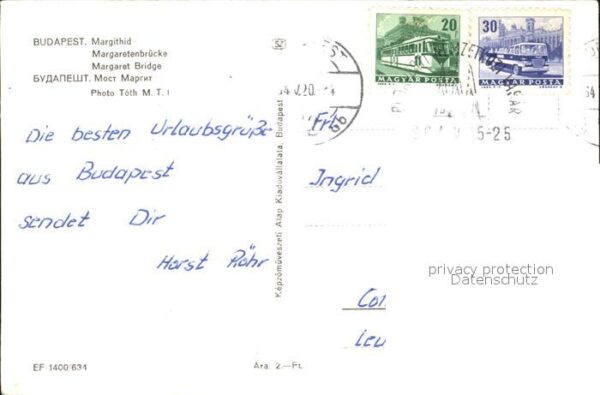 BUDAPEST. Margithid
Margaretenbrücke
Margaret Bridge
БУДАПЕШТ. Мост Маргит
Photo Tóth M. T. I
Die besten Urlaubsgrüße
aus Budapest
sendet Dir
Horst Röhr
EF 1400/634
Képzőművészeti Alap Kiadóvállalata, Budapest
Ára 2.—Ft.
20
MAGYAR POSTA
30
MAGYAR POSTA
5-25
Frl
Ingrid
privacy protection
Datenschutz